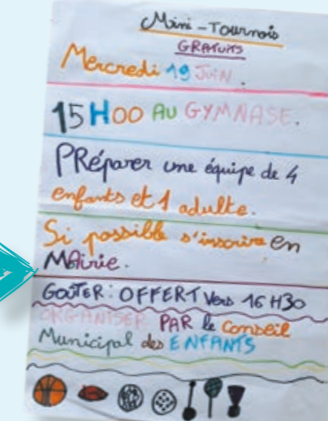 Mini-Tournois
GRATUITS
Mercredi 19 JUIN.
15H00 AU GYMNASE.
PRéparer une équipe de 4
enfants et 1 adulte.
Si possible s'inscrire en
Mairie.
GOÛTER: OFFERT Vers 16H30
ORGANISER PAR le Conseil
Municipal des ENFANTS